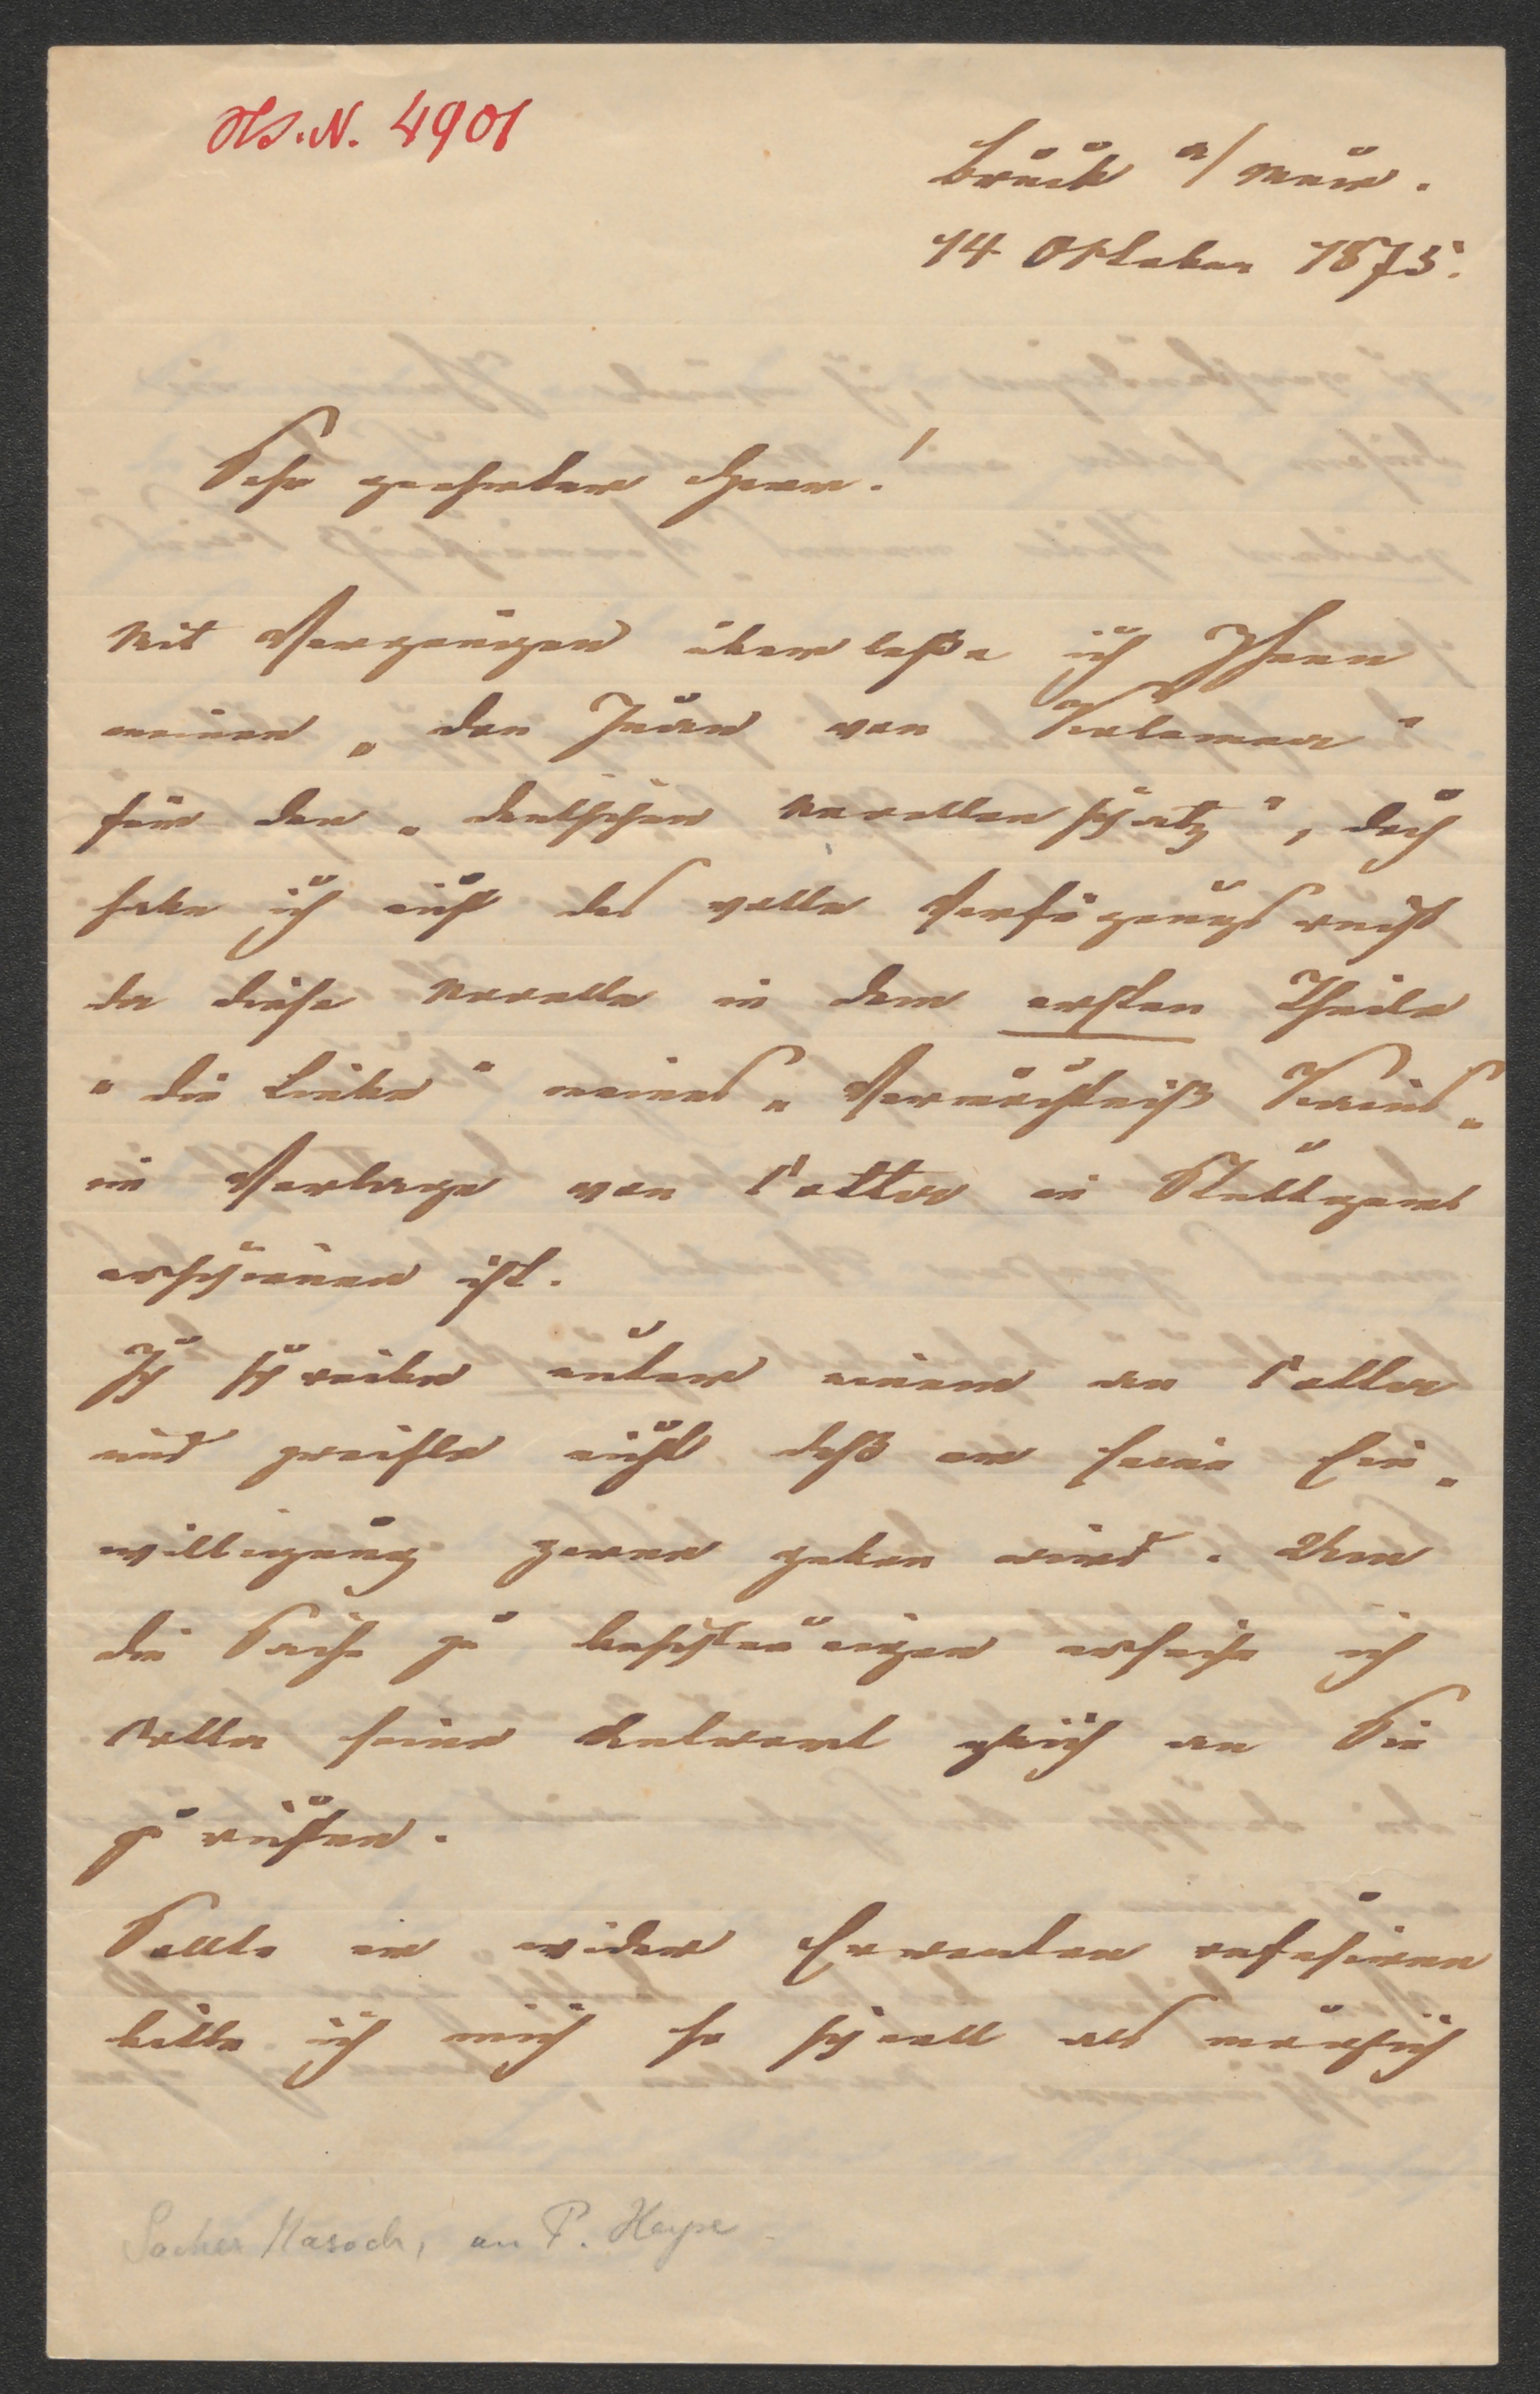 Hs. N. 4901
Bruck a/ Mur.
14 Oktober 1875.
Sehr geehrter Herr!
Mit Vergnügen überlaße ich Ihnen
meinen „Don Juan von Kolomea"
für den „deutschen Novellenschatz", doch
habe ich nicht das volle Verfügungsrecht
da diese Novelle in dem ersten Theile
„die Liebe" meines „Vermächtniß Kains„
im Verlage von Cotta in Stuttgart
erschienen ist.
Ich schreibe unter einem an Cotta
und zweifle nicht daß er seine Ein„
willigung gerne geben wird. Um
die Sache zu beschleunigen ersuche ich
Cotta seine Antwort gleich an Sie
zu richten.
Sollte er wider Erwarten refusiren
bitte ich mich so schnell als möglich
Sacher Masoch, an P. Heyse